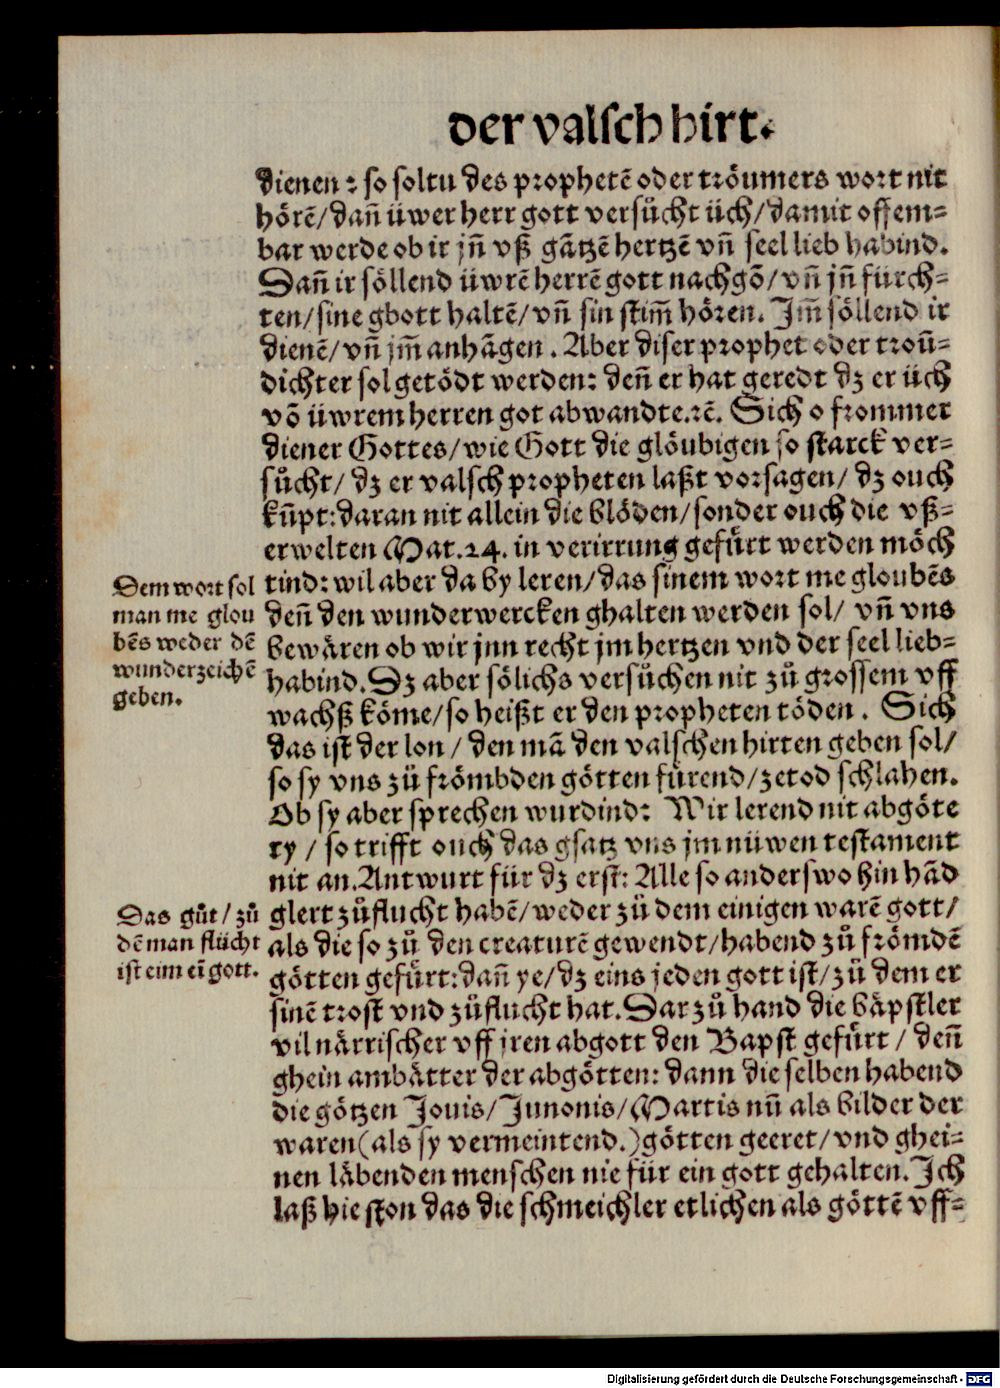 der valsch hirt.
dienen: so soltu des prophetē oder tröumers wort nit
hörē/dañ üwer herr gott versůcht üch/damit offem-
bar werde ob ir jñ vß gātzē hertzē vñ seel lieb habind.
Dañ ir söllend üwrē herrē gott nachgō/vñ jñ fürch-
ten/sine gbott haltē/vñ sin stim̄ hören. Im̄ söllend ir
dienē/vñ jm̄ anhāgen. Aber diser prophet oder troū-
dichter sol getödt werden: deñ er hat geredt dz er üch
vō üwrem herren got abwandte.ꝛc̄. Sich o frommer
diener Gottes/wie Gott die glöubigen so starck ver-
sůcht/ dz er valsch propheten laßt vorsagen/ dz ouch
kūpt: daran nit allein die blöden/sonder ouch die vß-
erwelten Mat.24. in verirrung gefürt werden möch
tind: wil aber da by leren/das sinem wort me gloubēs
deñ den wunderwercken ghalten werden sol/ vñ vns
bewären ob wir jnn recht jm hertzen vnd der seel lieb-
habind. Dz aber sölichs versůchen nit zů grossem vff
wachß köme/so heißt er den propheten töden. Sich
das ist der lon/ den mā den valschen hirten geben sol/
so sy vns zů frömbden götten fürend/zetod schlahen.
Ob sy aber sprechen wurdind: Wir lerend nit abgöte
ry/ so trifft ouch das gsatz vns jm nüwen testament
nit an. Antwurt für dz erst: Alle so anderswo hin hād
glert zůflucht habē/weder zů dem einigen warē gott/
als die so zů den creaturē gewendt/habend zů frömdē
götten gefürt: dañ ye/dz eins jeden gott ist/zů dem er
sinē trost vnd zůflucht hat. Dar zů hand die bäpstler
vil närrischer vff jren abgott den Bapst gefürt/ deñ
ghein ambätter der abgötten: dann die selben habend
die götzen Jouis/Junonis/Martis nū als bilder der
waren(als sy vermeintend.)götten geeret/vnd ghei-
nen läbenden menschen nie für ein gott gehalten. Ich
laß hie ston das die schmeichler etlichen als göttē vff-
Dem wort sol
man me glou
bēs weder dē
wunderzeichē
geben.
Das gůt/ zů
dē man flücht
ist eim eī gott.
Digitalisierung gefördert durch die Deutsche Forschungsgemeinschaft - DFG